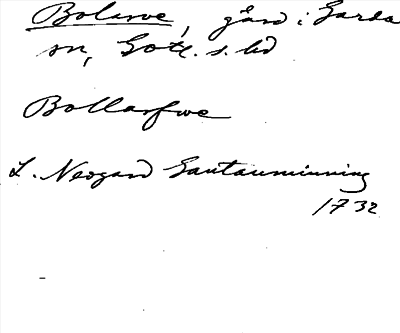 Bolarve, gård i Garda
sn, Gotl. s. hd
Bollarfwe
L. Neogard Gautauminning
1732